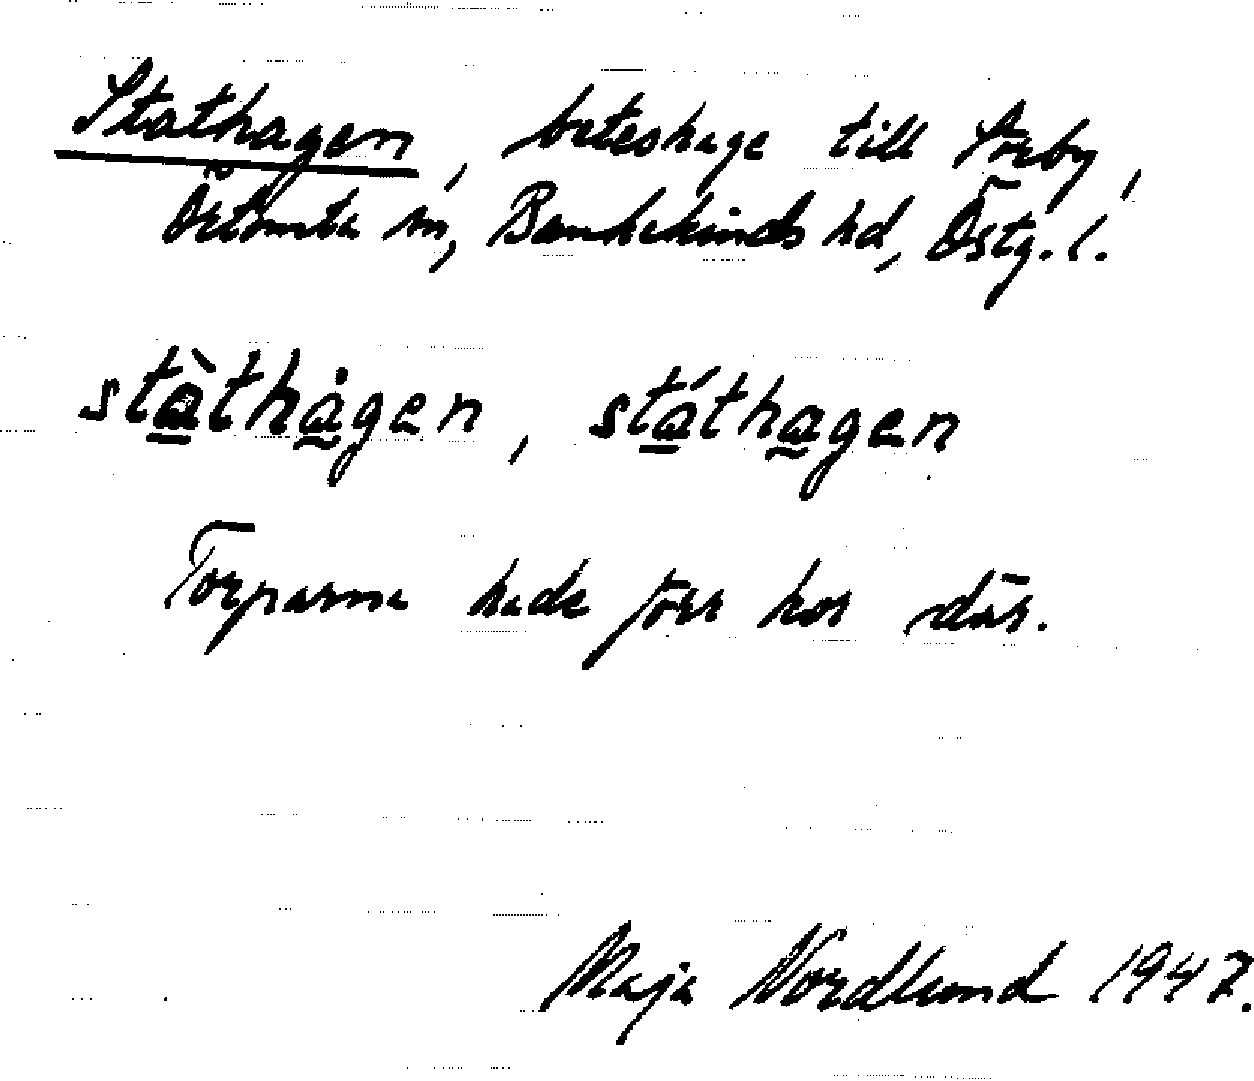 Stathagen, beteshage till Sörby,
Örtomta sn, Bankekinds hd, Östg. l.
stàthågen, státhagen
Torparna hade förr kor där.
Maja Nordlund 1947.